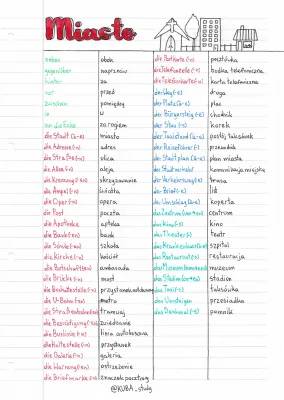 Miasto
neben obok
gegenüber naprzeciw
hinter za
vor przed
zwischen pomiędzy
in w
um die Ecke za rogiem
die Stadt (ä-e) miasto
die Adresse (-n) adres
die Straße (-n) ulica
die Allee (-n) aleja
die Kreuzung (-en) skrzyżowanie
die Ampel (-n) światła
die Oper (-n) opera
die Post poczta
die Apotheke apteka
die Bank (-en) bank
die Schule (-n) szkoła
die Kirche (-n) kościół
die Botschaft (-en) ambasada
die Brücke (-n) most
die Bushaltestelle (-n) przystanek autobusowy
die U-Bahn (-en) metro
die Straßenbahn (-en) tramwaj
die Besichtigung (-en) zwiedzanie
die Buslinie (-n) linia autobusowa
die Haltestelle (-n) przystanek
die Galerie (-n) galeria
die Warnung (-en) ostrzeżenie
die Briefmarke (-n) znaczek pocztowy
die Postkarte (-n) pocztówka
die Telefonzelle (-n) budka telefoniczna
die Telefonkarte (-n) karta telefoniczna
der Weg (-e) droga
der Platz (ä-e) plac
der Bürgersteig (-e) chodnik
der Stau (-s) korek
der Taxistand (ä-e) postój taksówek
der Reiseführer (-) przewodnik
der Stadtplan (ä-e) plan miasta
der Stadtverkehr komunikacja miejska
der Verkehrsweg (-e) trasa
der Brief (-e) list
der Umschlag (ä-e) koperta
das Zentrum centrum
das Kino (-s) kino
das Theater (-) teatr
das Krankenhaus szpital
das Restaurant (-s) restauracja
das Museum muzeum
das Stadion stadion
das Taxi (-s) taksówka
das Umsteigen przesiadka
das Denkmal pomnik
@KUBA_study